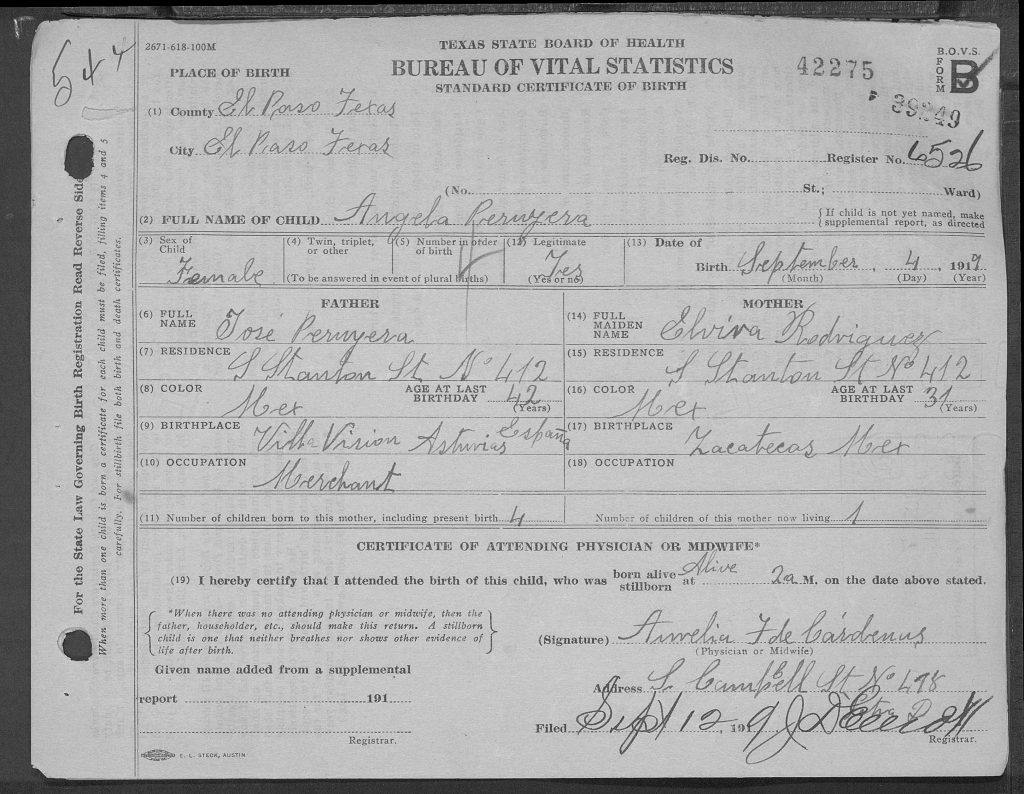 544
2671-618-100M
TEXAS STATE BOARD OF HEALTH
BUREAU OF VITAL STATISTICS
STANDARD CERTIFICATE OF BIRTH
42275
B.O.V.S.
FORM B
PLACE OF BIRTH
(1) County El Paso Texas
City El Paso Texas
Reg. Dis. No. Register No. 6526
(No. St.; Ward)
(2) FULL NAME OF CHILD Angela Peruyera
{If child is not yet named, make supplemental report, as directed
(3) Sex of Child Female
(4) Twin, triplet, or other
(5) Number in order of birth
(To be answered in event of plural births)
(12) Legitimate Yes (Yes or no)
(13) Date of Birth September, 4, 1919
(Month) (Day) (Year)
FATHER
(6) FULL NAME José Peruyera
(7) RESIDENCE S Stanton St No 412
(8) COLOR Mex AGE AT LAST BIRTHDAY 42 (Years)
(9) BIRTHPLACE Villa Vision Asturias España
(10) OCCUPATION Merchant
MOTHER
(14) FULL MAIDEN NAME Elvira Rodriguez
(15) RESIDENCE S Stanton St No 412
(16) COLOR Mex AGE AT LAST BIRTHDAY 31 (Years)
(17) BIRTHPLACE Zacatecas Mex
(18) OCCUPATION
(11) Number of children born to this mother, including present birth 4 Number of children of this mother now living 1
CERTIFICATE OF ATTENDING PHYSICIAN OR MIDWIFE*
(19) I hereby certify that I attended the birth of this child, who was born alive stillborn Alive at 2a M. on the date above stated.
{*When there was no attending physician or midwife, then the
father, householder, etc., should make this return. A stillborn
child is one that neither breathes nor shows other evidence of
life after birth.}
(Signature) Aurelia F de Cárdenas
(Physician or Midwife)
Given name added from a supplemental
report 191
Registrar.
Address S Campbell St No 498
Filed Sept 12, 1919
Registrar.
E. L. STECK, AUSTIN
For the State Law Governing Birth Registration Read Reverse Side
When more than one child is born a certificate for each child must be filed, filling items 4 and 5
carefully. For stillbirth file both birth and death certificates.